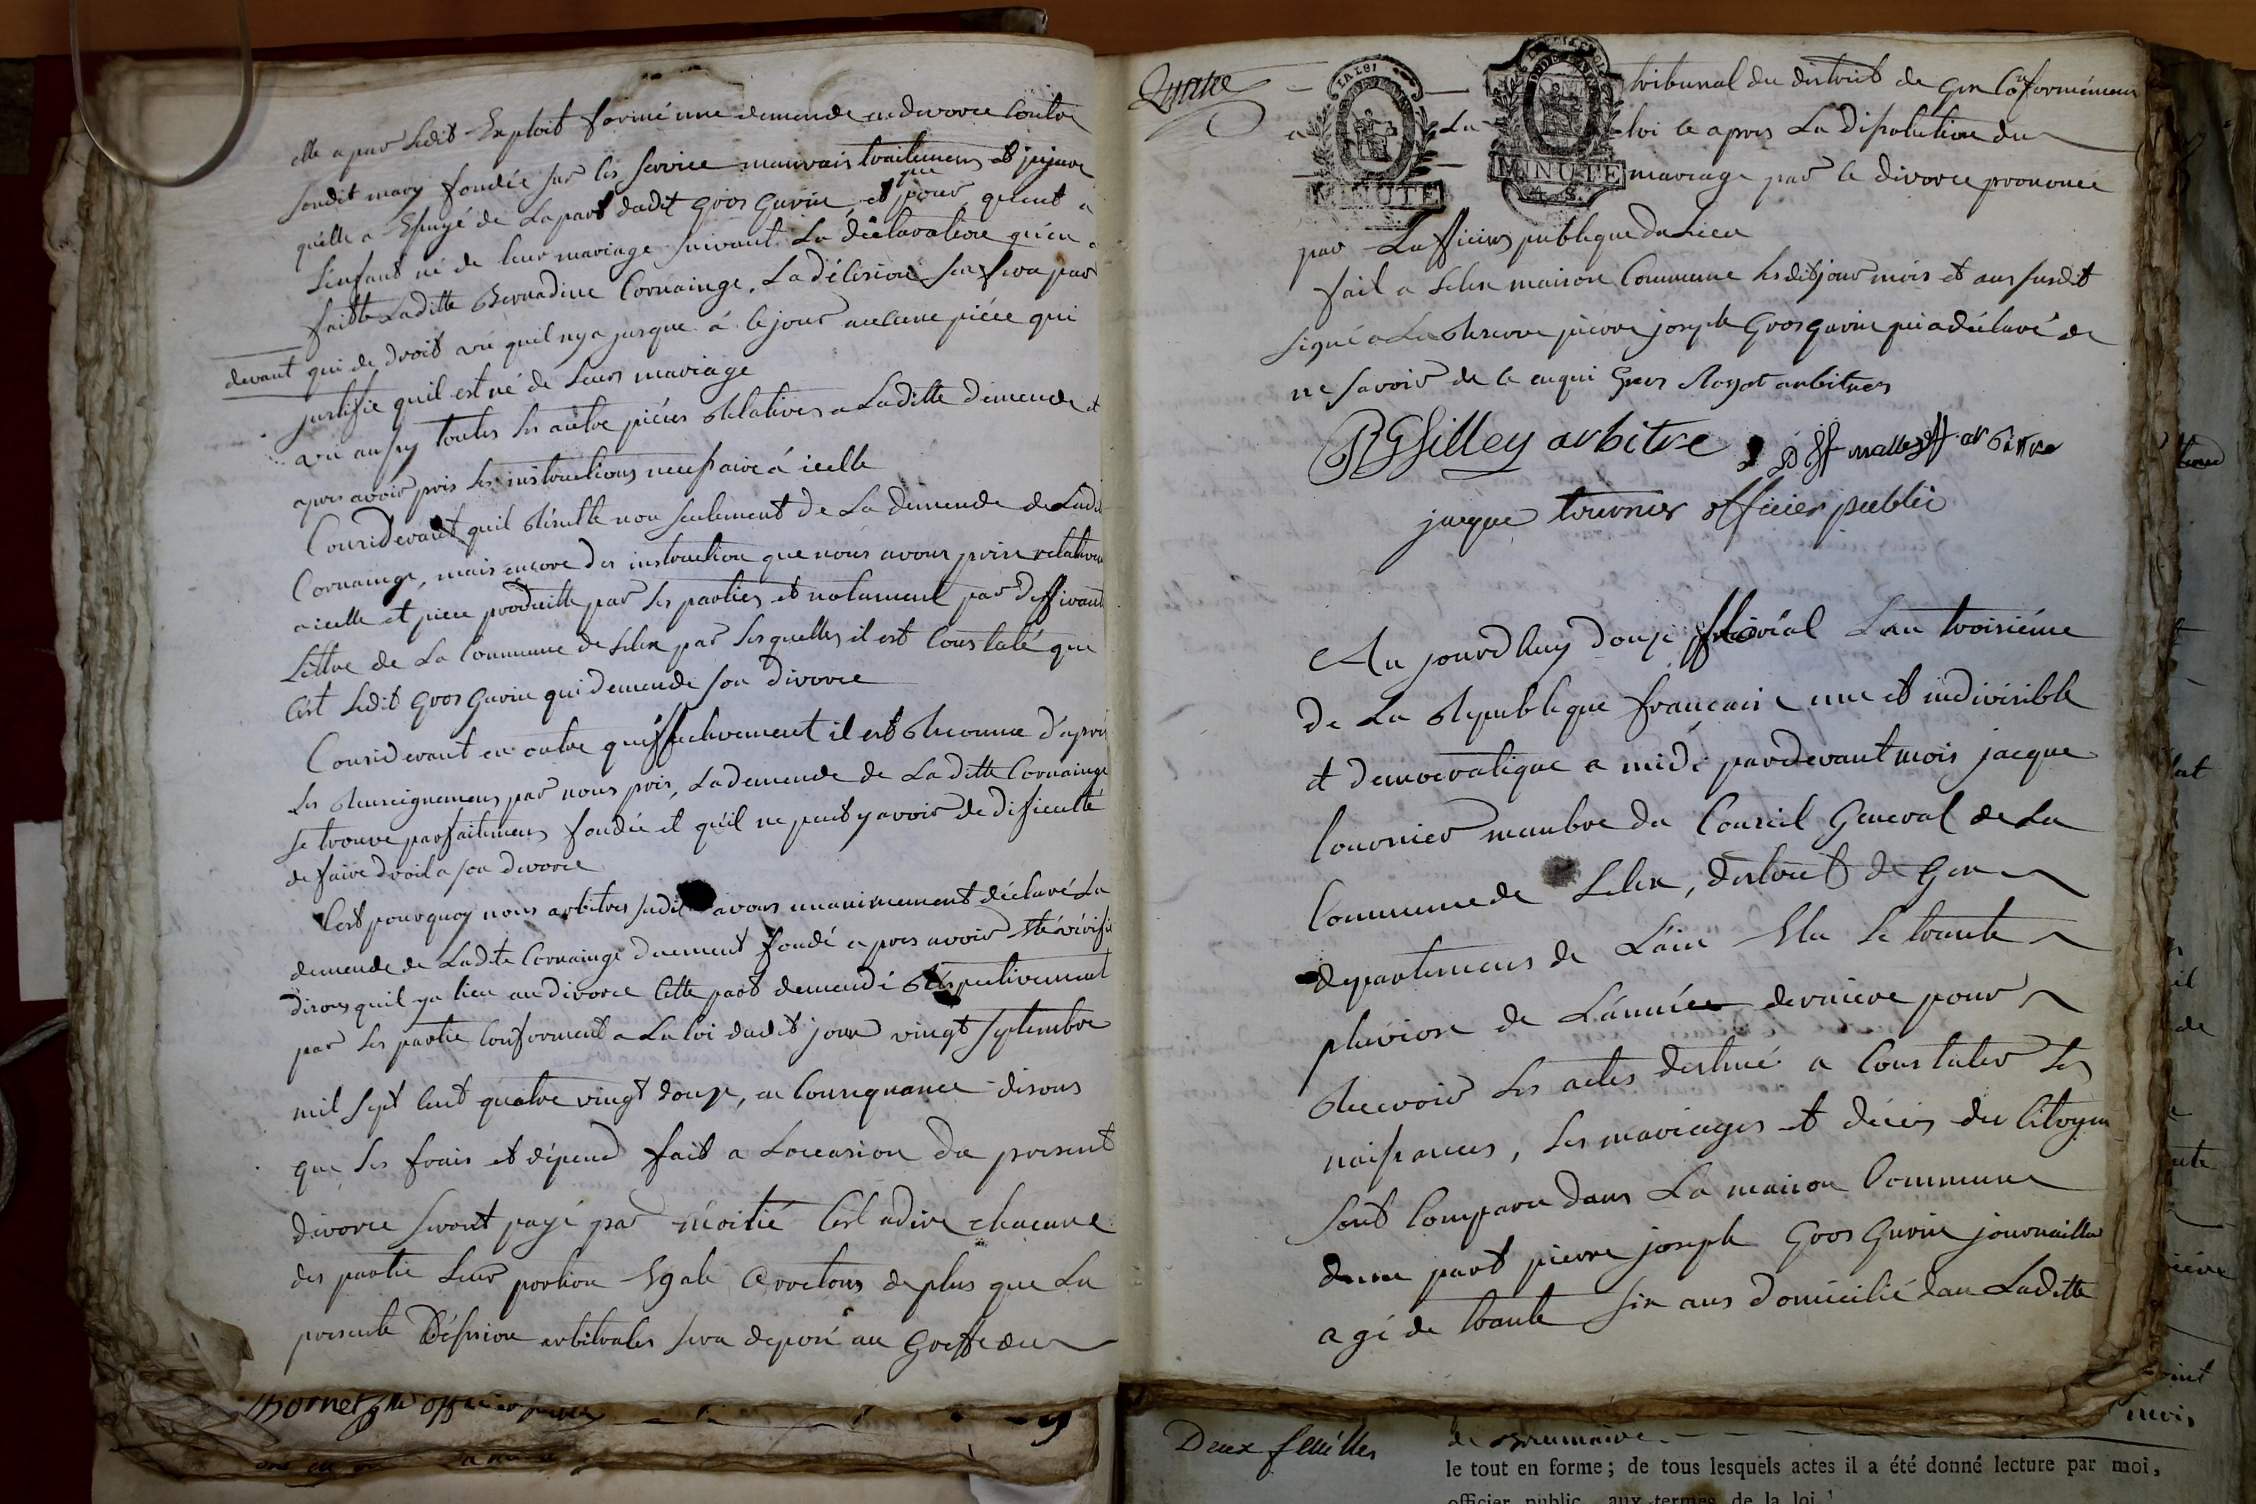 elle a par ledit Exploit formé une demende en divorce Contre
sondit mary fondée sur les sevice mauvais traitemens et injure
que
qu'elle a Essuyé de la part dudit Gros Gurin et pour quant a
L'enfant né de leur mariage suivant La déclaration qu'en a
faitte Laditte Bernadine Cornainge, La décision sen fera par
devant qui de droit vu quil ny a jusque à ce jour aucune piéce qui
justifie quil est né de Leurs mariage
vu aussy toutes les autre piéces Relatives a Laditte demende et
apres avoir pris les instructions necessaire á icelle
Considerant quil Résulte non seulement de La demende de Ladit
Cornainge, mais encore des instruction que nous avons prise relativem
a icelle et piece produitte par les parties et notament par differant
Lettre de La Commune de Lelex par lesquelles il est Constaté que
C'est ledit Gros Gurin qui demende son divorce
Considerant en outre qu'effectivement il est Reconnu d'aprés
Les Renseignemens par nous pris, La demende de La ditte Cornainge
se trouve parfaitemens fondée et qu'il ne peut y avoir de difficulté
de faire droit a son divorce
C'est pourquoy nous arbitres sudit avons unanimement déclaré La
demende de Ladite Cornainge duement fondé apres avoir Eté vérifié
disons quil ya lieu au divorce Cette part demendé Réspectivement
par les partie Conforment a La loi dudit jour vingt septembre
mil sept Cent quatre vingt douze, en Consequance disons
que les frais et dépend fait a L'occasion du present
divorce seront payé par moitié C'est adire chacune
des partie Leur portion Egale Arretons de plus que La
presente Désision arbitrales sera deposé au Greffe du
Thornet officier public
Quatre
tribunal du district de Gex Conformémen
a La loi ce apres La dissolution du
mariage par le divorce prononcé
par L'officier publique du Lieu
fait a Lelex maison Commune lesdit jour mois et an susdit
signé a La Reserve pierre joseph Gros Gurin qui a déclaré de
ne savoir de ce enqui Gros Rosset arbitres
arbitre
arbitre
jacque tournier officier public
LA LOI
MINUTE
MINUTE
4. S.
Au jourdhuy douze floréal L'an troisiéme
de La Republique francaise une et indivisible
et democratique a midi pardevant mois jacque
tournier manbre du Conseil General de La
Commune de Lelex, district de Gex
departemens de L'ain Elu le trante
pluviose de L'année derniere pour
Recevoir les actes destiné a Constater les
naissances, les mariages et décés des Citoyen
sont Comparu dans La maison Commune
dune part pierre joseph Gros Gurin journaillier
agé de trante six ans domicilié dan Laditte
Deux feuilles
de Brumaire
le tout en forme; de tous lesquels actes il a été donné lecture par moi,
officier public, aux termes de la loi.